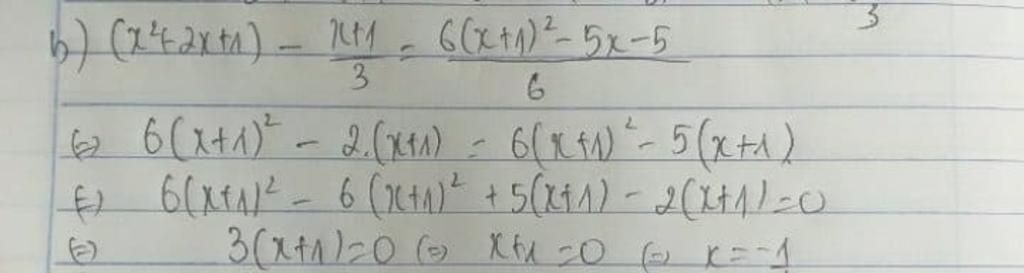 3
b) (x²+2x+1) - \frac{x+1}{3} = \frac{6(x+1)² - 5x - 5}{6}
(=) 6(x+1)² - 2.(x+1) = 6(x+1)² - 5(x+1)
(=) 6(x+1)² - 6(x+1)² + 5(x+1) - 2(x+1) = 0
(=) 3(x+1) = 0 (=) x+1 = 0 (=) x = -1